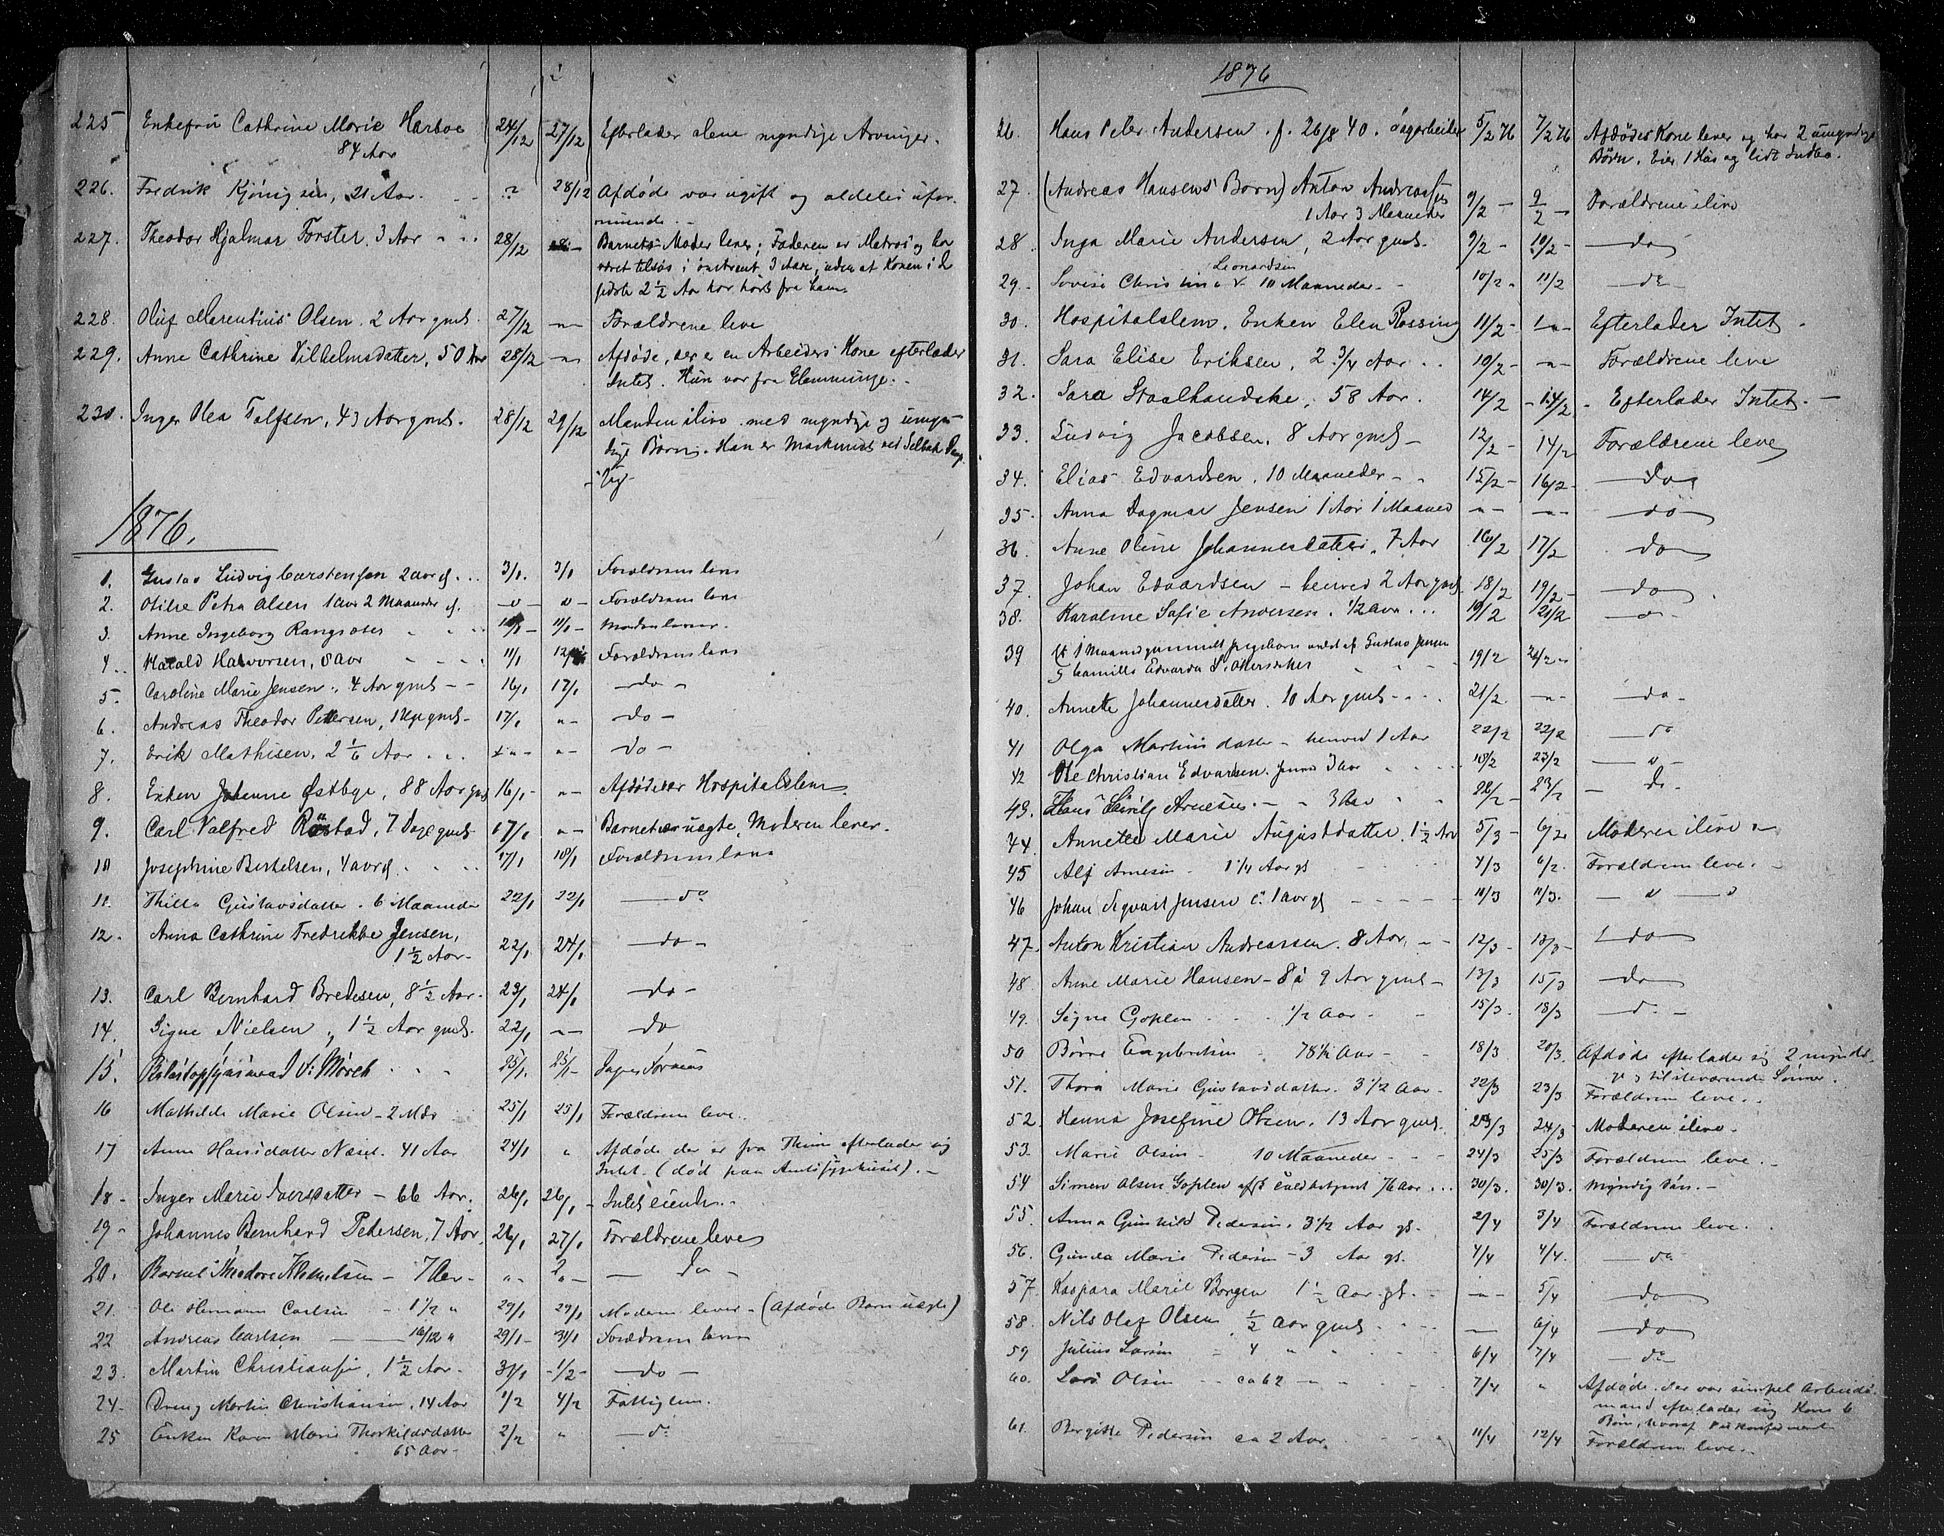 225 Enkefru Cathrine Marie Harboe 24/12 27/12 Efterlader alene myndige Arvinger.
84 Aar
226. Fredrik Kjönigsen, 21 Aar. ? 28/12 Afdøde var ugift og aldeles ufor-
muende. -
227. Theodor Hjalmar Forster, 3 Aar 28/12 Barnets Moder lever; Faderen er Matros og har
været tilsøs i 3 Aar, uden at Konen i de
sidste 2 1/2 Aar har hørt fra ham.
228. Oluf Marentius Olsen, 2 Aar gml. 27/12 -"- Forældrene leve
229. Anne Cathrine Vilhelmsdatter, 50 Aar 28/12 -"- Afdøde, der er en Arbeiders Kone efterlader
Intet. Hun var fra Glemminge.
230. Inger Olea Tolfsen, 43 Aar gml. 28/12 29/12 Manden ilive med myndige og umyn-
dige Børn. Han er Maskinist ved Selbak
1876.
1. Gustav Ludvig Carstensen 2 aar gl. 3/1. 3/1 Forældrene leve
2. Otilie Petra Olsen 1 aar 2 Maaneder gl. -"- -"- Forældrene leve
3. Anne Ingeborg 11/1- Moderen lever.
4. Harald Halvorsen, 8 aar 11/1 Forældrene leve
5. Caroline Marie Jensen, 4 Aar gml. 16/1 17/1 - do -
6. Andreas Theodor Pettersen, 1 Uge gml. 17/1 -"- - do -
7. Erik Mathisen, 2 1/6 Aar -"- -"- - do -
8. Enken Johanne Østbye, 88 Aar gml 16/1 -"- Afdøde var Hospitalslem
9. Carl Valfred Röstad, 7 Dage gml. 17/1 -"- Barnet er uægte, Moderen lever.
10 Josephine Bertelsen, 4 aar gl. 17/1 18/1 Forældrene leve
11. Thilla Gustavsdatter. 6 Maaneder 22/1 22/1 - do
12. Anna Cathrine Fredrikke Jensen, 22/1 24/1 - do -
1 1/2 Aar -
13. Carl Bernhard Bredesen, 8 1/2 Aar. 23/1 24/1 - do -
14. Signe Nielsen, 1 1/2 Aar gml. 22/1 -"- do
15. Mørch 25/1. 25/1-
16 Mathilde Marie Olsen - 2 Mdr 25/1 25/1 Forældrene leve.
17 Anne Hansdatter Næset. 41 Aar 24/1 " Afdøde der er fra efterlader sig
Intet. (død paa Amtssygehuset). -
18 - Inger Marie Iversdatter - 66 Aar. 26/1 26/1 - Intet eiende. -
19 - Johannes Bernhard Pedersen, 7 Aar 26/1 27/1 Forældrene leve
20. Barnet Theodore Klemetsen - 7 Aar - -"- - do -
21. Ole Hermann Carlsen - 1 1/2 " 29/1 29/1 Moderen lever - (Afdøde Barn uægte)
22 Andreas Carlsen - 10/12 " 29/1 - 31/1 Forældrene leve
23. Martin Christiansen, 1 1/2 Aar - 31/1 - 1/2 - - do -
24. Dreng Martin Christiansen, 14 Aar 1/2 4/2 Fattiglem.
25 Enken Karen Marie Thorkildsdatter 2/2 " - do
65 Aar -
1876
26. Hans Peter Andersen. f. 26/8 40. Dagarbeider 5/2 76 7/2 76 Afdødes Kone lever og har 2 umyndige
Børn. Eier 1 Hus og lidt Indbo.
27. (Andreas Hansens Børn) Anton Andreassen 9/2 - 9/2 - Forældrene ilive
1 Aar 3 Maaneder
28. Inga Marie Andersen, 2 Aar gml. 9/2 - 10/2 - - do
29. Lovise Christine Leonardsen 10 Maaneder - 10/2 - 11/2 - do -
30. Hospitalslem, Enken Elen Rossing 11/2 - -"- Efterlader Intet.
31. Sara Elise Eriksen, 2 3/4 Aar 10/2 - -"- Forældrene leve
32. Sara Staalhandske, 58 Aar. 14/2 - 14/2 - Efterlader Intet. -
33. Ludvig Jacobsen, 8 Aar gml - 12/2 - 14/2 Forældrene leve
34. Elias Edvardsen. 10 Maaneder - 15/2 - 16/2 - - do
35. Anna Dagmar Jensen 1 Aar 1 Maaned -"- -"- - do -
36. Anne Oline Johannesdatter. 7 Aar 16/2 17/2 - do
37. Johan Edvardsen - henved 2 Aar gml. 18/2 19/2 - - do
38. Karoline Sofie Andersen. 1/2 Aar 19/2 21/2 - " -
39 Et 1 Maaned gammelt pigebarn Gustav Jensen 19/2 -"-
& Camilla Edvarda
40. Annette Johannesdatter. 10 Aar gml. 21/2. -"- - do -
41 Olga Martinsdatter - henved 1 Aar 22/2 22/2 - do
42 Ole Christian Edvardsen. 3 aar 19/2 23/2 - " -
43. Hans Arnesen - " 3 Aar 22/2 - 23/2 - do.
44. Annette Marie Augustdatter. 1 1/2 Aar 5/3 - 6/3 Moderen ilive -
45 Alf Arnesen - 1 1/4 Aar gl 4/3 6/2. Forældrene leve. -
46 Johan Sigvart Jensen c. 1 aar gl 11/3 11/3. - " -
47. Anton Kristian Andreassen. 8 Aar, - 12/3 - 13/3 - - do -
48 Anne Marie Hansen - 8 à 9 Aar gml - 13/3 15/3 - do
49. Signe Goplen 1/2 Aar - 15/3. 18/3 - do -
50 Børre Engebretsen - 78 1/2 Aar - 18/3 20/3. Afdøde efterlader sig 2 myndi-
ge & tilstedeværende Sønner.
51. Thora Marie Gustavsdatter. 3 1/2 Aar - 22/3 23/3 Forældrene leve. -
52. Hanna Josefine Olsen. 13 Aar gml. 23/3 24/3 - Moderen ilive.
53. Marie Olsen - 10 Maaneder - 24/3 25/3 Forældrene leve. -
54 Simen Olsen Goplen 76 Aar 30/3. 30/3. Myndig Søn. -
55. Anna Gunhild Pedersen, 3 1/2 Aar gl. 2/4 3/4 Forældrene leve.
56. Gunda Marie Pedersen - 3 Aar gl. 4/4 4/4. - do -
57. Kaspara Marie Borgen 1 1/2 Aar gl. -"- 5/4 - do -
58. Nils Olaf Olsen 1/2 Aar gml. - 6/4 - do
59 Julius Larsen - 4 " 6/4 7/4 - do -
60. Lars Olsen - ca 62 - 7/4 " Afdøde, der var simpel Arbeids-
mand efterlader sig Kone & 6
Børn, hvoraf
61. Bergitte Pedersen ca 2 Aar. 11/4 12/4 Forældrene leve. -